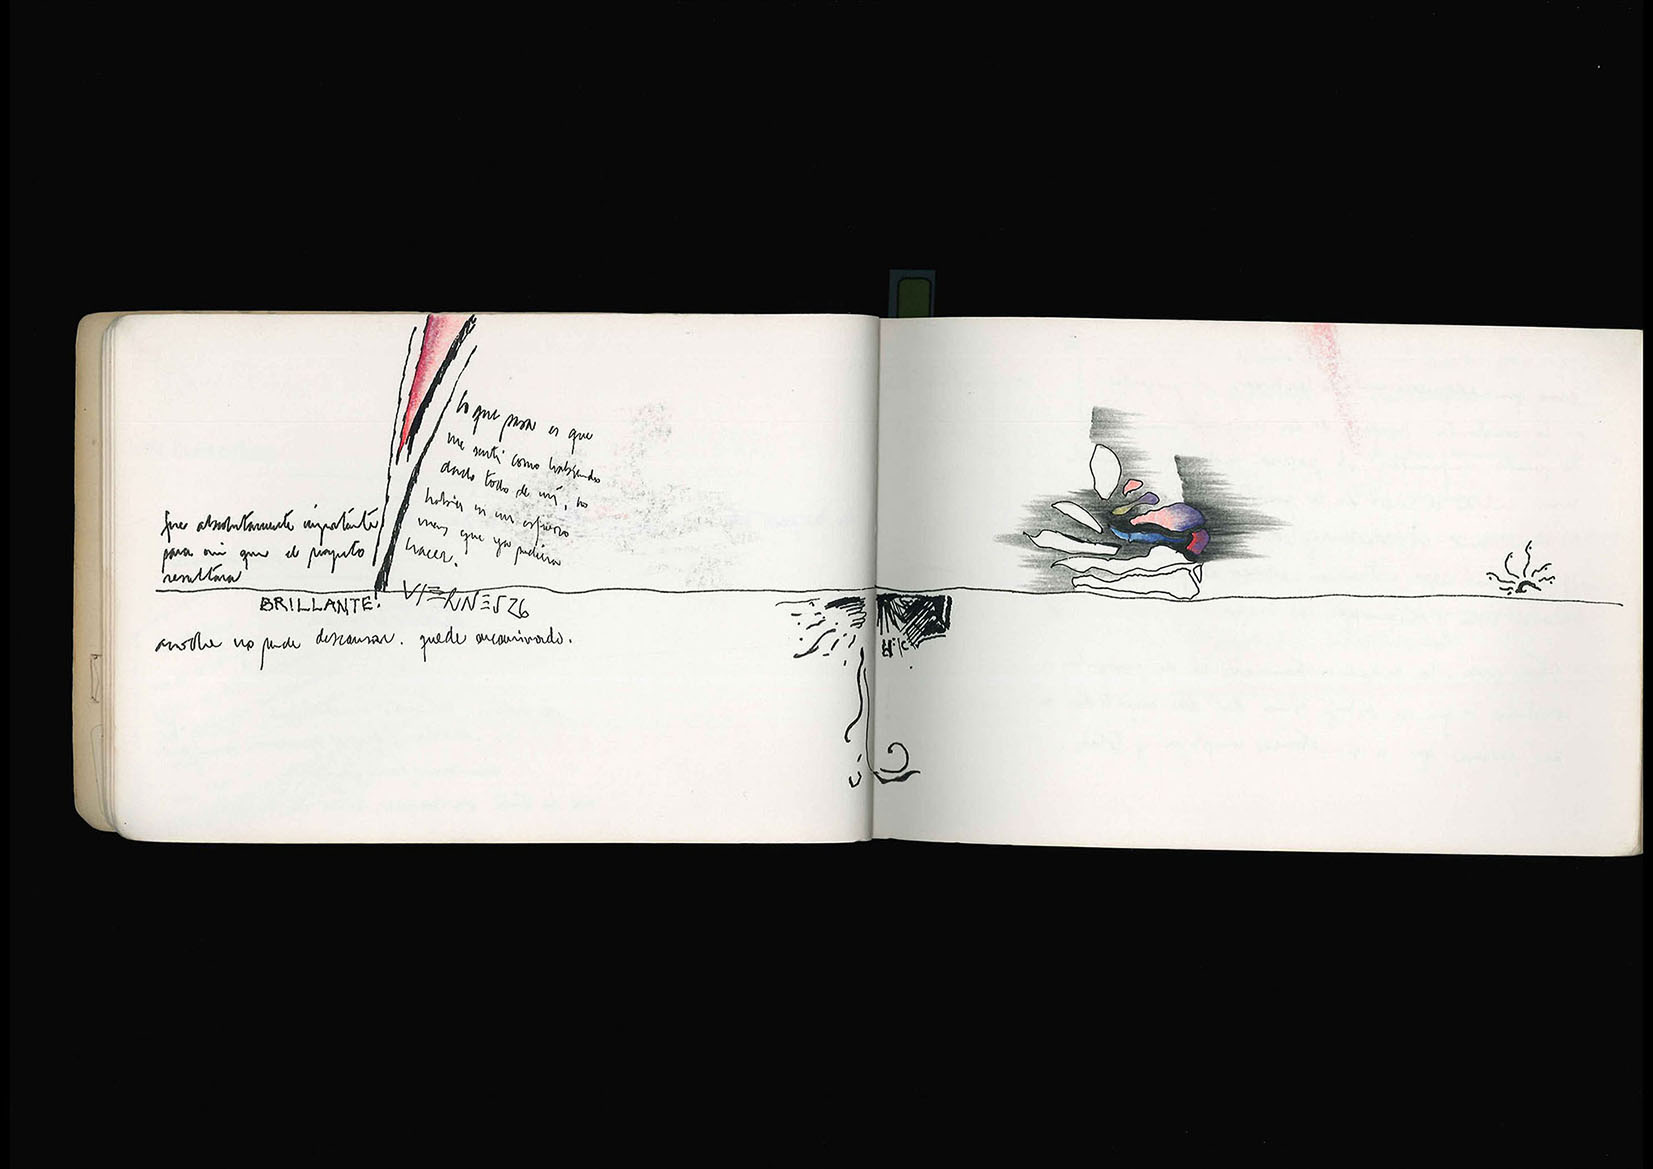 fue absolutamente importante
para mi que el proyecto
resultara
BRILLANTE!
lo que pasa es que
me sentí como habiendo
dado todo de mí, no
había un esfuerzo
mas que yo pudiera
hacer.
VIERNES 26
anoche no pude descansar. quede